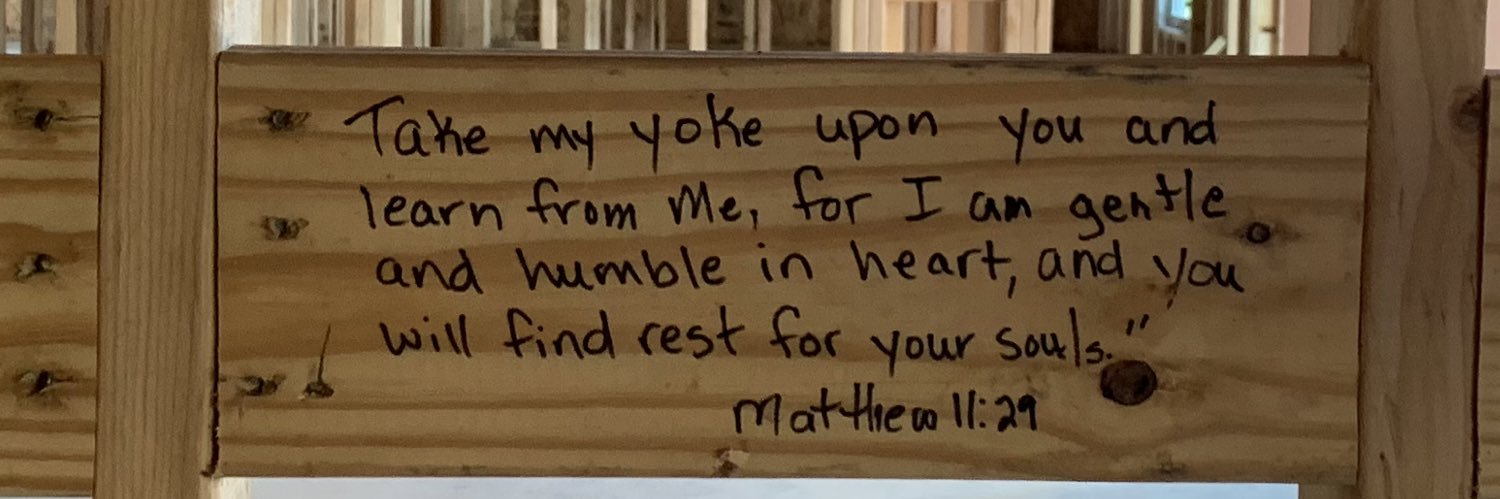 Take my yoke upon you and
learn from Me, for I am gentle
and humble in heart, and you
will find rest for your souls."
Matthew 11:29